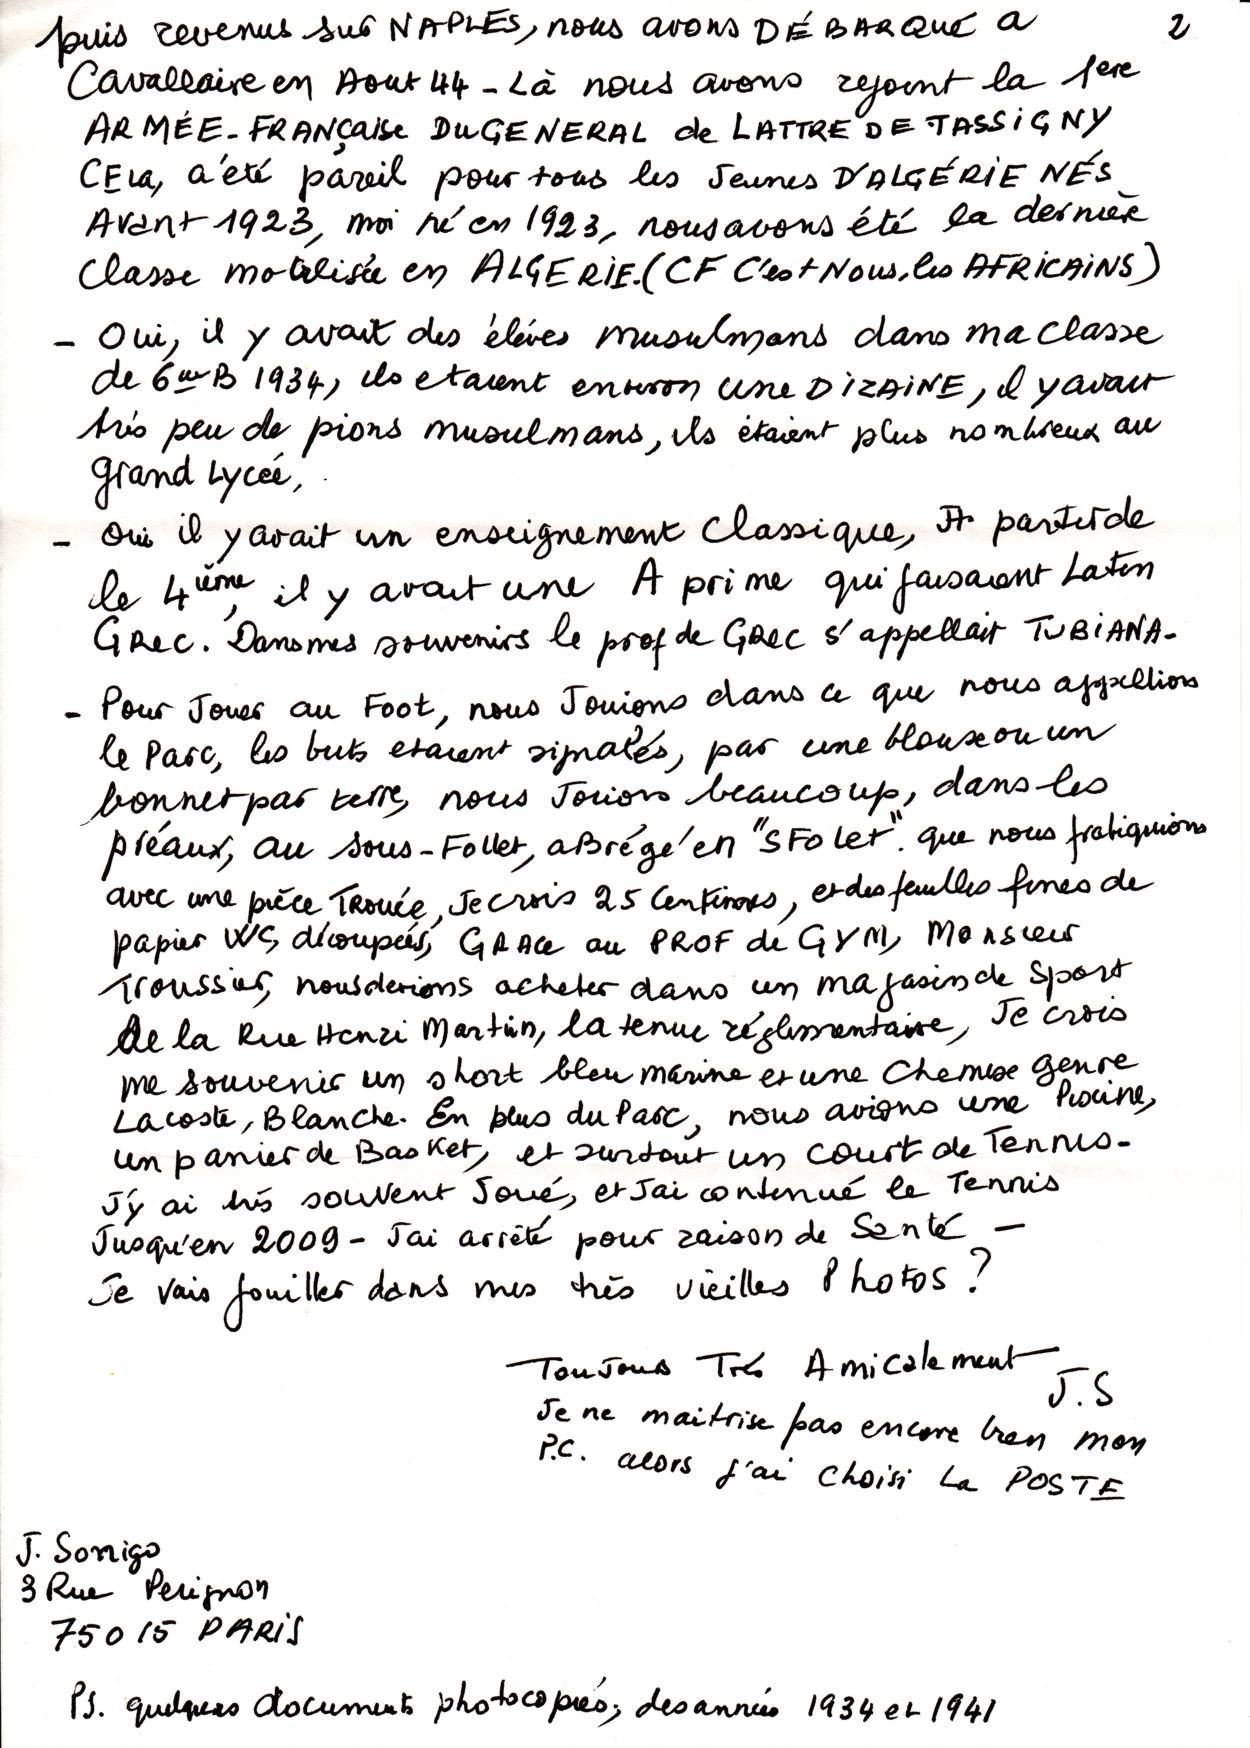 puis revenus sur NAPLES, nous avons DÉBARQUÉ a 2
Cavallaire en Aout 44 - Là nous avons rejoint la 1ere
ARMÉE - FRANÇaise DU GENERAL de LATTRE DE TASSIGNY
CELa, a été pareil pour tous les Jeunes D'ALGÉRIE NÉS
Avant 1923, moi né en 1923, nous avons été la dernière
Classe mobilisée en ALGERIE. (CF C'est Nous, les AFRICAINS)
- Oui, il y avait des élèves musulmans dans ma classe
de 6me B 1934, ils etaient environ une DIZAINE, il y avait
très peu de pions musulmans, ils étaient plus nombreux au
grand Lycée,
- Oui il y avait un enseignement Classique, A partir de
le 4ième, il y avait une A prime qui faisaient Latin
GREC. Dans mes souvenirs le prof de GREC s'appellait TUBIANA-
- Pour Jouer au Foot, nous Jouions dans ce que nous appellions
le Parc, les buts etaient signalés, par une blouse ou un
bonnet par terre, nous Jouions beaucoup, dans les
préaux, au sous-Follet, aBrégé en "SFolet". que nous pratiquions
avec une pièce Trouée, Je crois 25 Centimes, et des feuilles fines de
papier WC, découpées, GRAce au PROF de GYM, Monsieur
Troussier, nous devions acheter dans un magasin de Sport
de la Rue Henri Martin, la tenue réglementaire, Je crois
me souvenir un short bleu marine et une Chemise genre
Lacoste, Blanche. En plus du Parc, nous avions une Piscine,
un panier de Basket, et surtout un court de Tennis-
J'y ai très souvent Joué, et J'ai continué le Tennis
Jusqu'en 2009 - J'ai arrêté pour raison de Santé -
Je vais fouiller dans mes très vieilles Photos ?
Toujours Très Amicalement
J.S
Je ne maitrise pas encore bien mon
P.C. alors j'ai choisi La POSTE
J. Sorrigo
3 Rue Perignon
75015 PARIS
PS. quelques documents photocopiés, des années 1934 et 1941